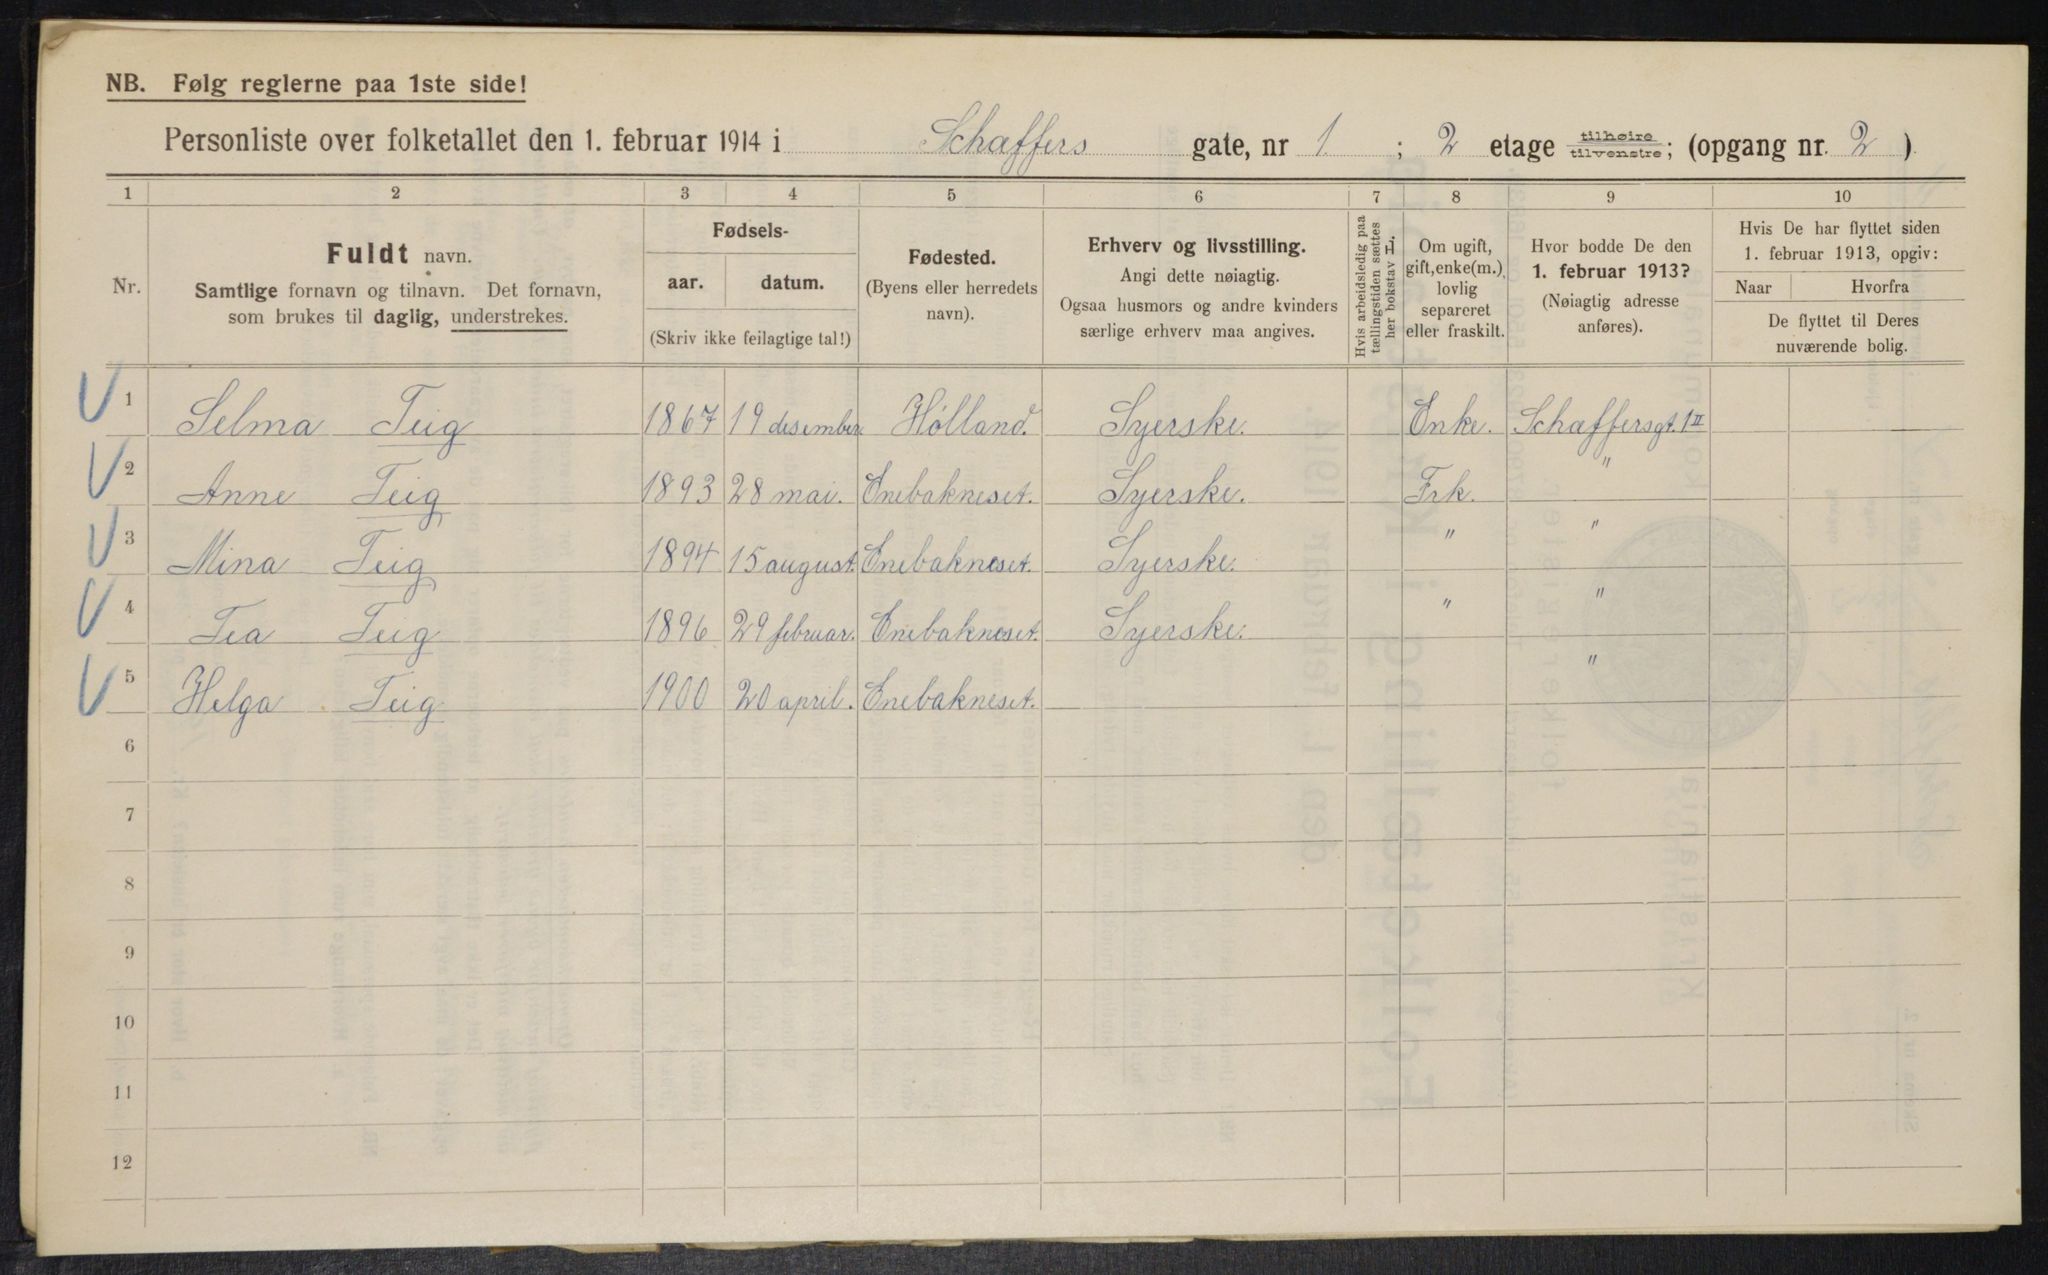 NB. Følg reglerne paa 1ste side!
Personliste over folketallet den 1. februar 1914 i Schaffers gate, nr 1 ; 2 etage tilhøire/tilvenstre; (opgang nr. 2 ).
1 2 3 4 5 6 7 8 9 10
Nr.
Fuldt navn.
Samtlige fornavn og tilnavn. Det fornavn,
som brukes til daglig, understrekes.
Fødsels-
aar. datum.
(Skriv ikke feilagtige tal!)
Fødested.
(Byens eller herredets
navn).
Erhverv og livsstilling.
Angi dette nøiagtig.
Ogsaa husmors og andre kvinders
særlige erhverv maa angives.
Hvis arbeidsledig paa
tællingstiden sættes
her bokstav L.
Om ugift,
gift, enke(m.),
lovlig
separeret
eller fraskilt.
Hvor bodde De den
1. februar 1913?
(Nøiagtig adresse
anføres).
Hvis De har flyttet siden
1. februar 1913, opgiv:
Naar Hvorfra
De flyttet til Deres
nuværende bolig.
1 Selma Teig 1867 19 desember Hølland. Syerske. Enke. Schaffersgt. 1 II
2 Anne Teig 1893 28 mai. Enebakneset. Syerske. Frk. "
3 Mina Teig 1894 15 august. Enebakneset. Syerske. " "
4 Tea Teig 1896 29 februar. Enebakneset. Syerske. " "
5 Helga Teig 1900 20 april. Enebakneset. "
6
7
8
9
10
11
12